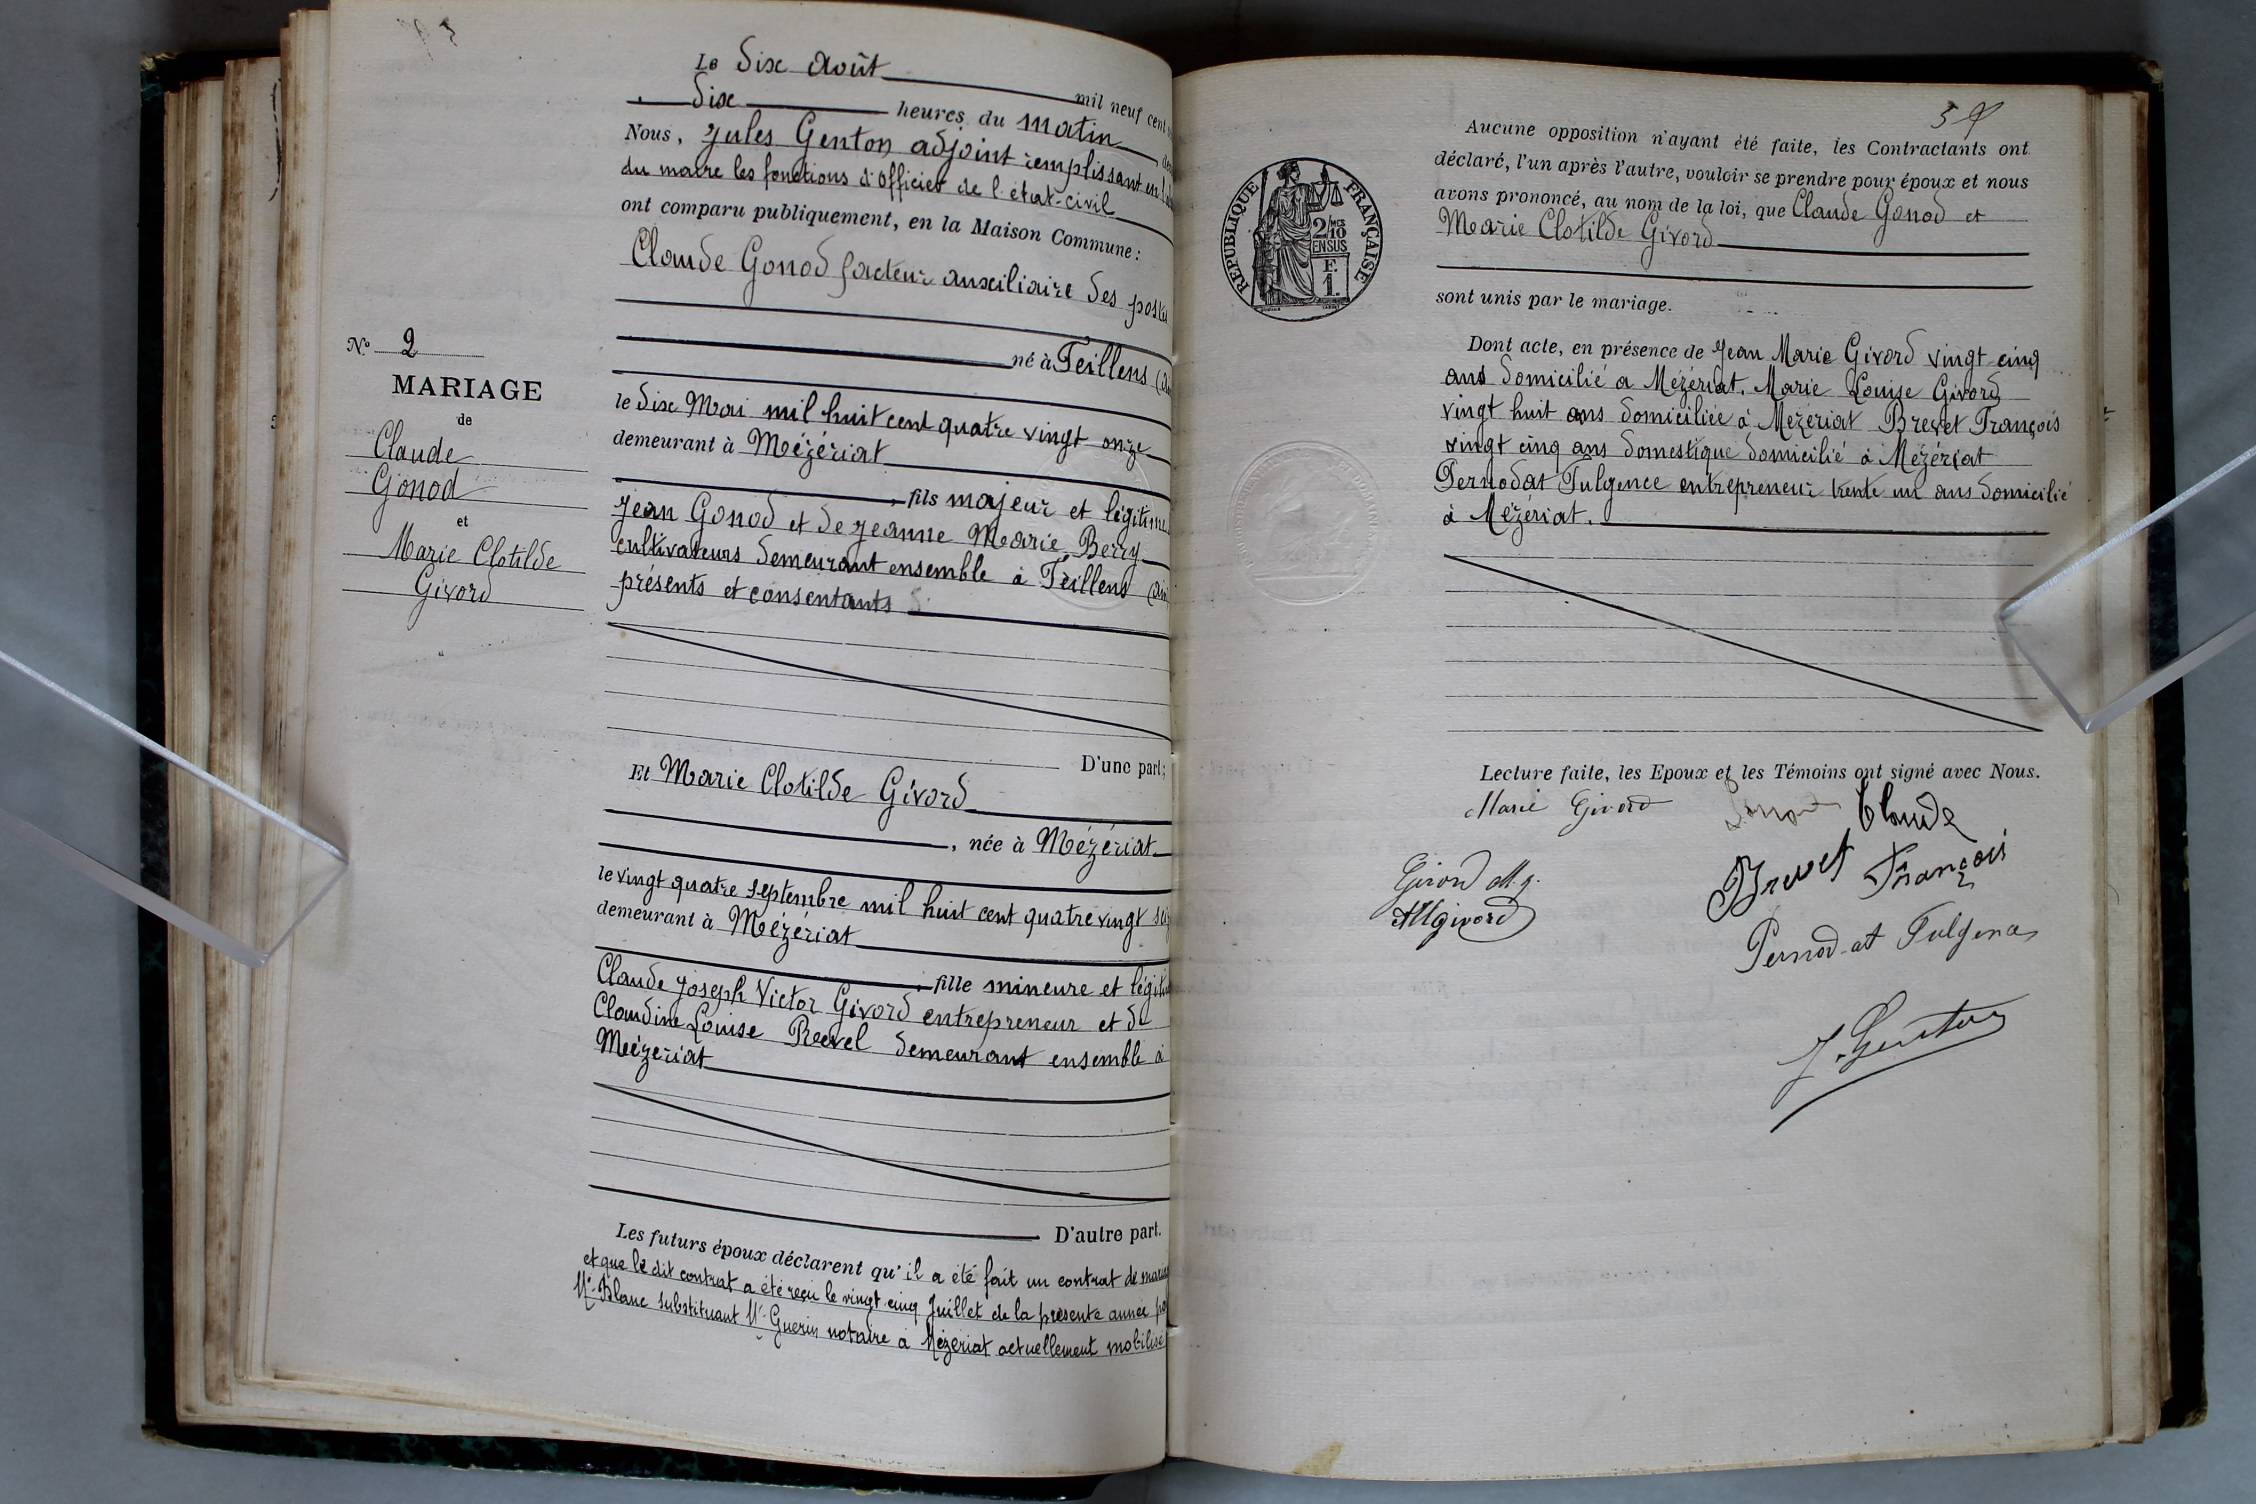 Le dix Août mil neuf cent
dix heures du matin
Nous, Jules Genton adjoint remplissant en
du maire les fonctions d'officier de l'état-civil
ont comparu publiquement, en la Maison Commune :
Claude Gonod facteur auxiliaire des postes
né à Feillens
le dix Mai mil huit cent quatre vingt onze
demeurant à Mézériat
, fils majeur et légitime
Jean Gonod et de Jeanne Marie Berry
cultivateurs demeurant ensemble à Feillens (Ain
présents et consentants
No 2
MARIAGE
de
Claude
Gonod
et
Marie Clotilde
Givord
D'une part;
Et Marie Clotilde Givord
, née à Mézériat
le vingt quatre septembre mil huit cent quatre vingt
demeurant à Mézériat
, fille mineure et
Claude Joseph Victor Givord entrepreneur et de
Claudine Louise Revel demeurant ensemble à
Mézériat
D'autre part.
Les futurs époux déclarent qu'il a été fait un contrat de
et que le dit contrat a été reçu le vingt cinq Juillet de la présente année
Me Blanc substituant Me Guerin notaire à Mézériat actuellement mobilisé
RÉPUBLIQUE FRANÇAISE
2/10
EN SUS
F.
1.
Aucune opposition n'ayant été faite, les Contractants ont
déclaré, l'un après l'autre, vouloir se prendre pour époux et nous
avons prononcé, au nom de la loi, que Claude Gonod et
Marie Clotilde Givord
sont unis par le mariage.
Dont acte, en présence de Jean Marie Givord vingt cinq
ans domicilié a Mézériat. Marie Louise Givord
vingt huit ans domiciliée à Mézériat Brevet François
vingt cinq ans domestique domicilié à Mézériat
Pernodat Fulgence entrepreneur trente un ans domicilié
à Mézériat.
Lecture faite, les Epoux et les Témoins ont signé avec Nous.
Marie Givord Gonod Claude
Givord Brevet François
Givord
Pernodat Fulgence
J. Genton